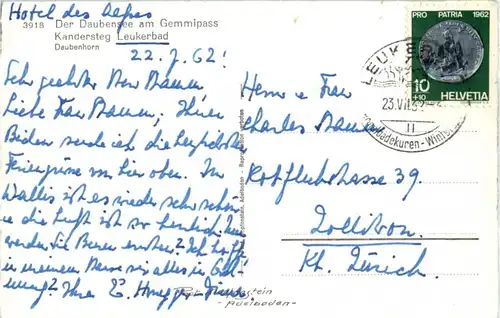 Hotel des Alpes
3918 Der Daubensee am Gemmipass
Kandersteg Leukerbad
Daubenhorn
22. 7. 62!
Sehr geehrter Herr
Liebe Frau Ihnen
Beiden sende ich die herzlichsten
Feriengrüsse von hier oben. Im
Wallis ist es wieder sehr schön
u die Luft ist so herrlich.
werden Sie Ich hoffe
in meinem Hause sei alles in
Ihre E. Honegger
Herrn u Frau
Charles
Rotfluhstrasse 39
Zollikon.
Kt. Zürich.
PRO PATRIA 1962
10
+10 HELVETIA
LEUKERBAD
23.VII.62
11
Badekuren - Winter
Adelboden - Reproduktion verboten
- Adelboden -